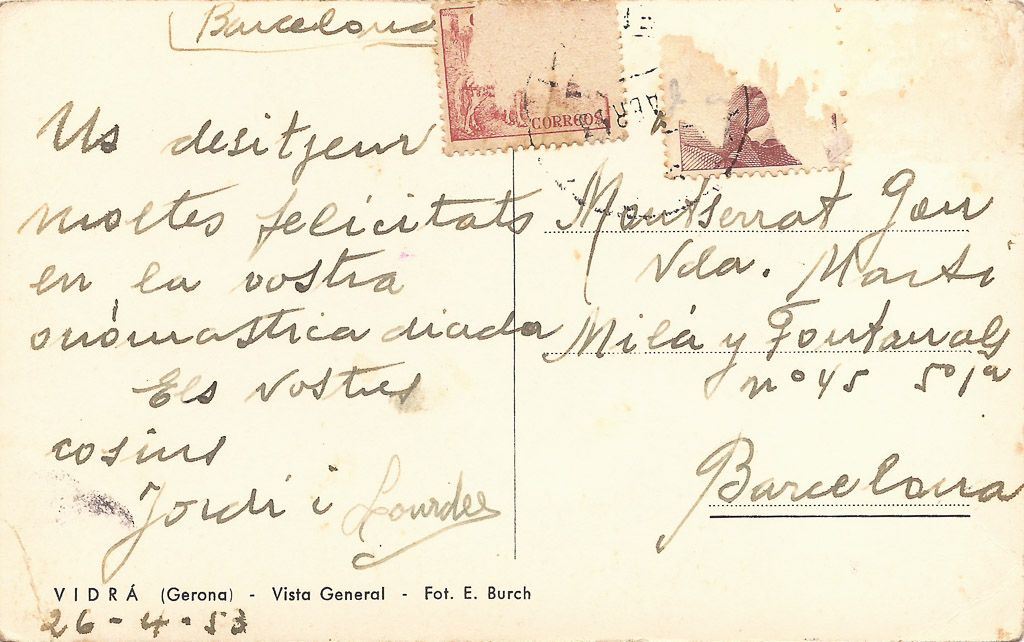 Barcelona
CORREOS
Us desitjem
moltes felicitats
en la vostra
onómastica diada
Els vostres
cosins
Jordi i Lourdes
Montserrat
Vda. Marti
Milá y Fontanals
nº 45 5º 1ª
Barcelona
VIDRÁ (Gerona) - Vista General - Fot. E. Burch
26-4-53